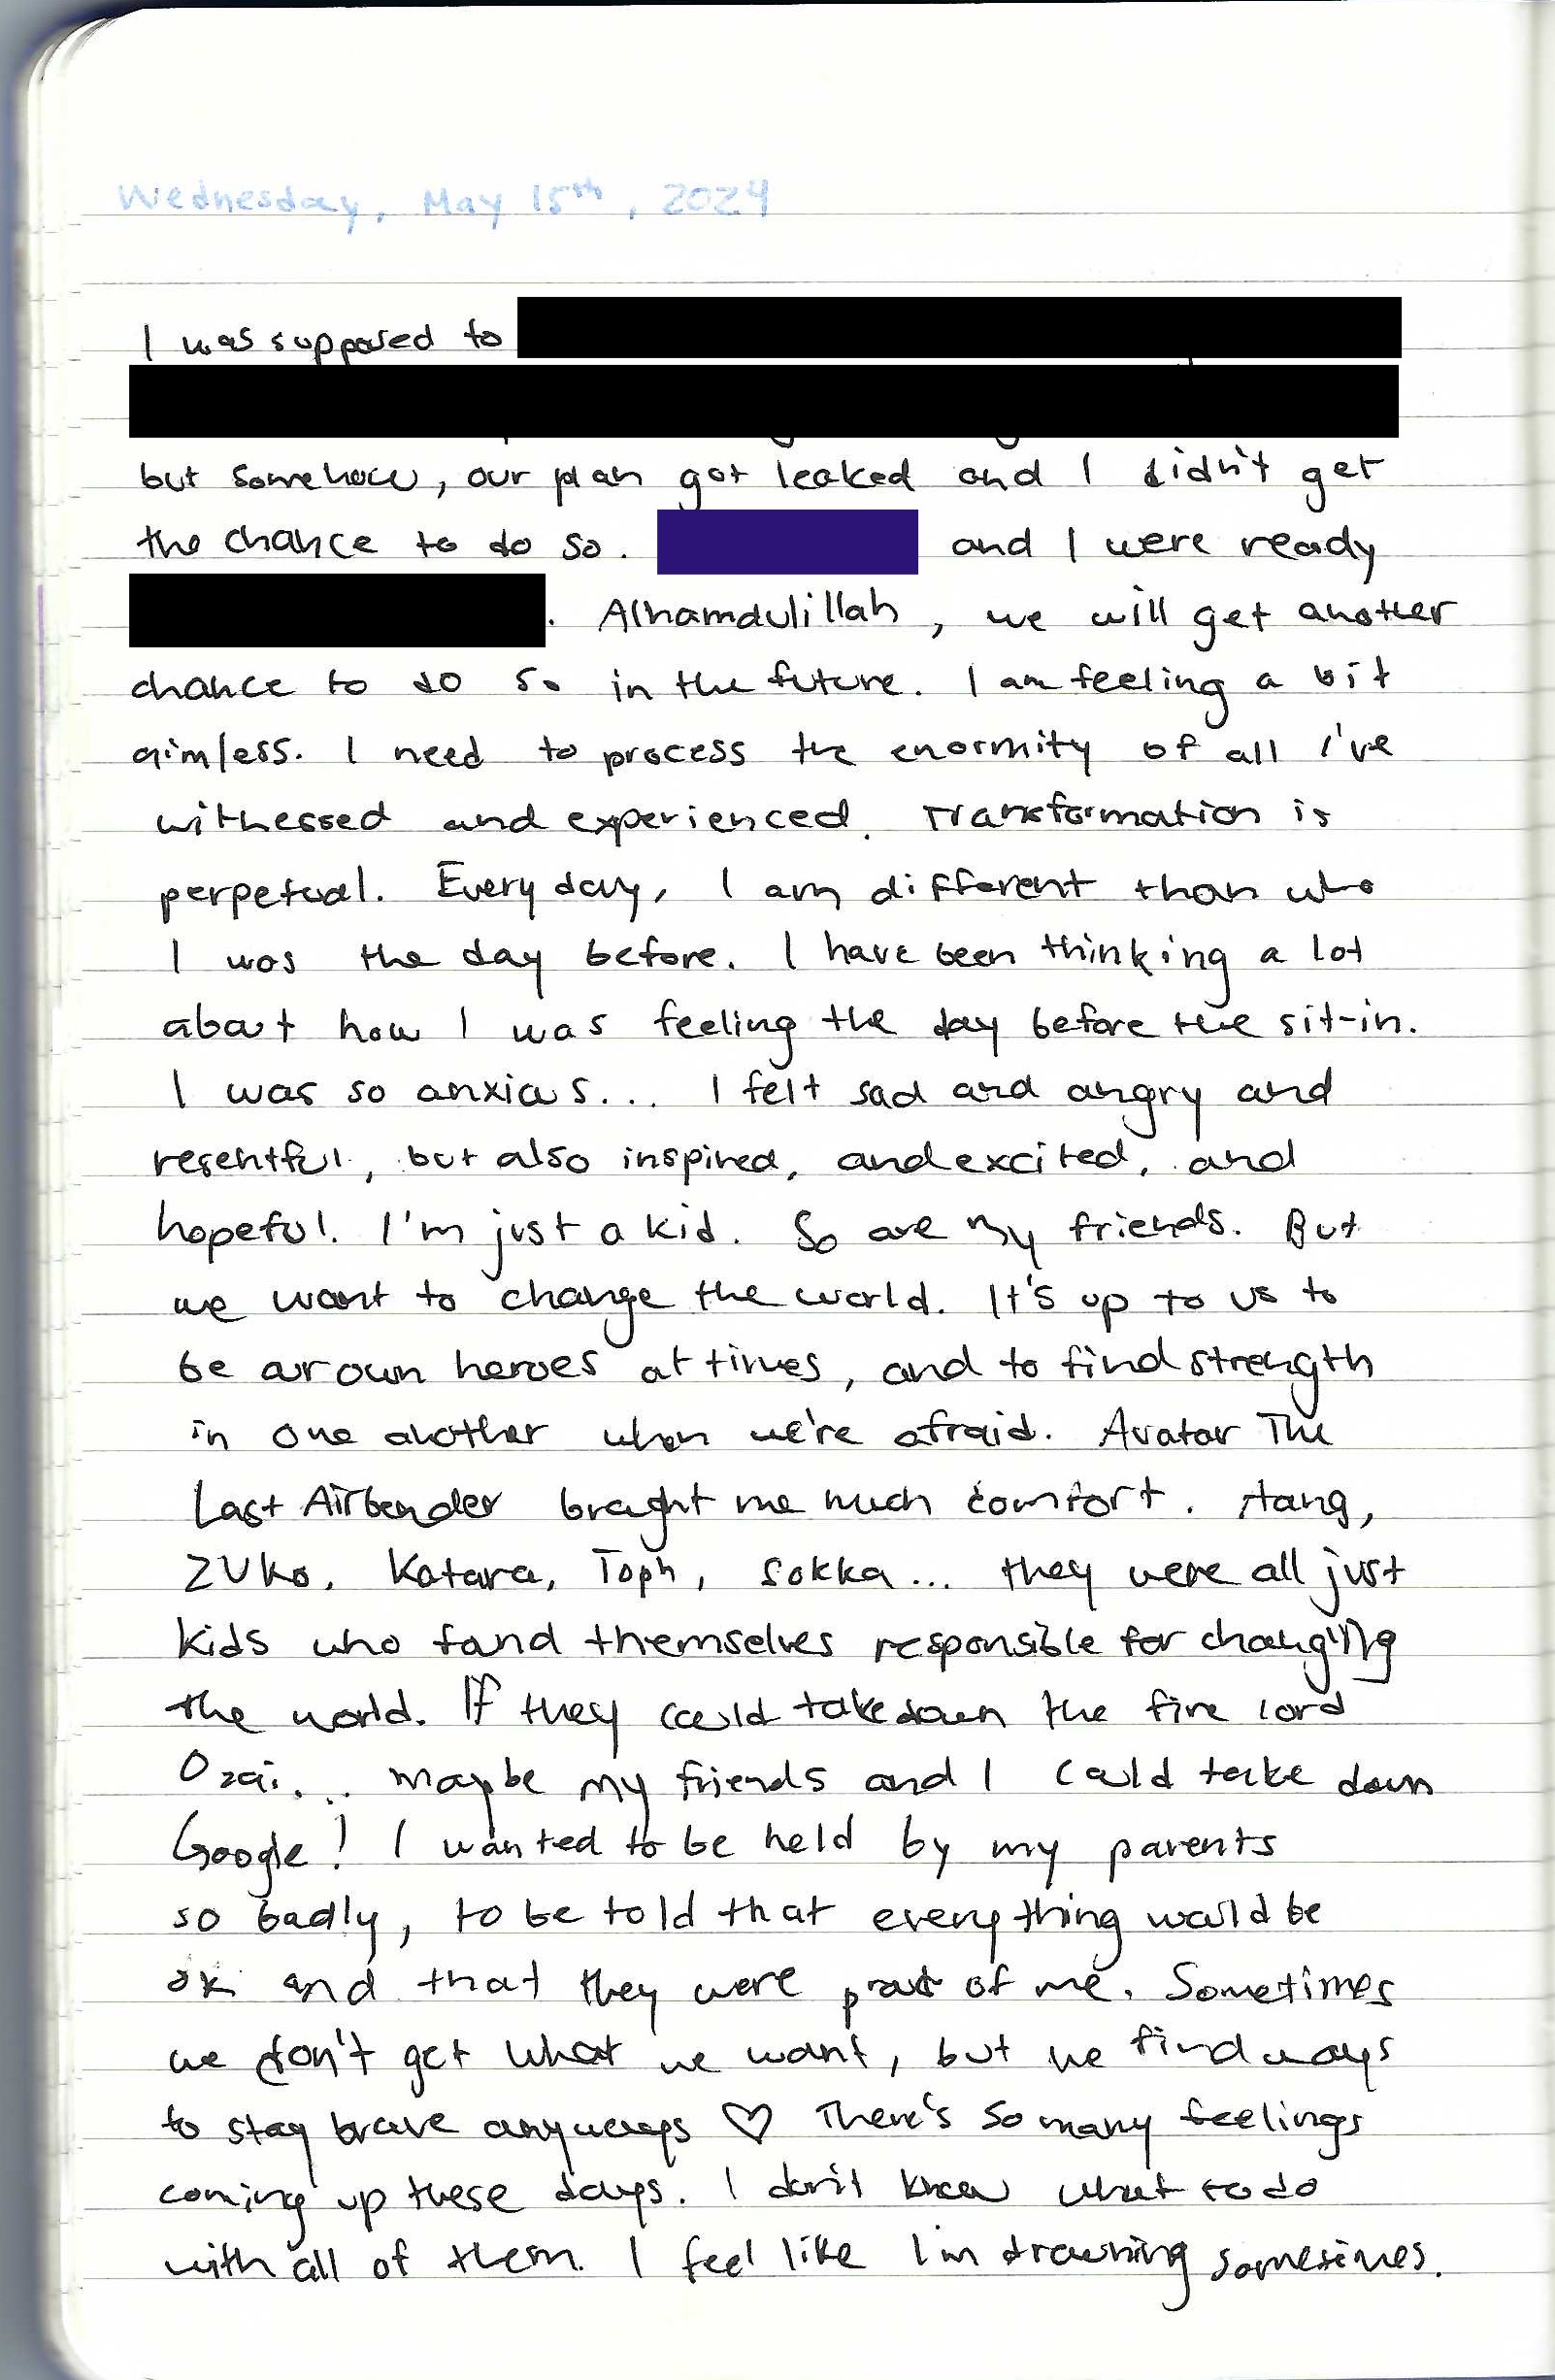 Wednesday, May 15th, 2024
I was supposed to
but somehow, our plan got leaked and I didn't get
the chance to do so. and I were ready
. Alhamdulillah, we will get another
chance to do so in the future. I am feeling a bit
aimless. I need to process the enormity of all I've
witnessed and experienced. Transformation is
perpetual. Every day, I am different than who
I was the day before. I have been thinking a lot
about how I was feeling the day before the sit-in.
I was so anxious... I felt sad and angry and
resentful, but also inspired, and excited, and
hopeful. I'm just a kid. So are my friends. But
we want to change the world. It's up to us to
be our own heroes at times, and to find strength
in one another when we're afraid. Avatar The
Last Airbender brought me much comfort. Aang,
Zuko, Katara, Toph, Sokka... they were all just
kids who found themselves responsible for changing
the world. If they could take down the fire lord
Ozai... maybe my friends and I could take down
Google! I wanted to be held by my parents
so badly, to be told that everything would be
ok and that they were proud of me. Sometimes
we don't get what we want, but we find ways
to stay brave anyways ♡ There's so many feelings
coming up these days. I don't know what to do
with all of them. I feel like I'm drowning sometimes.